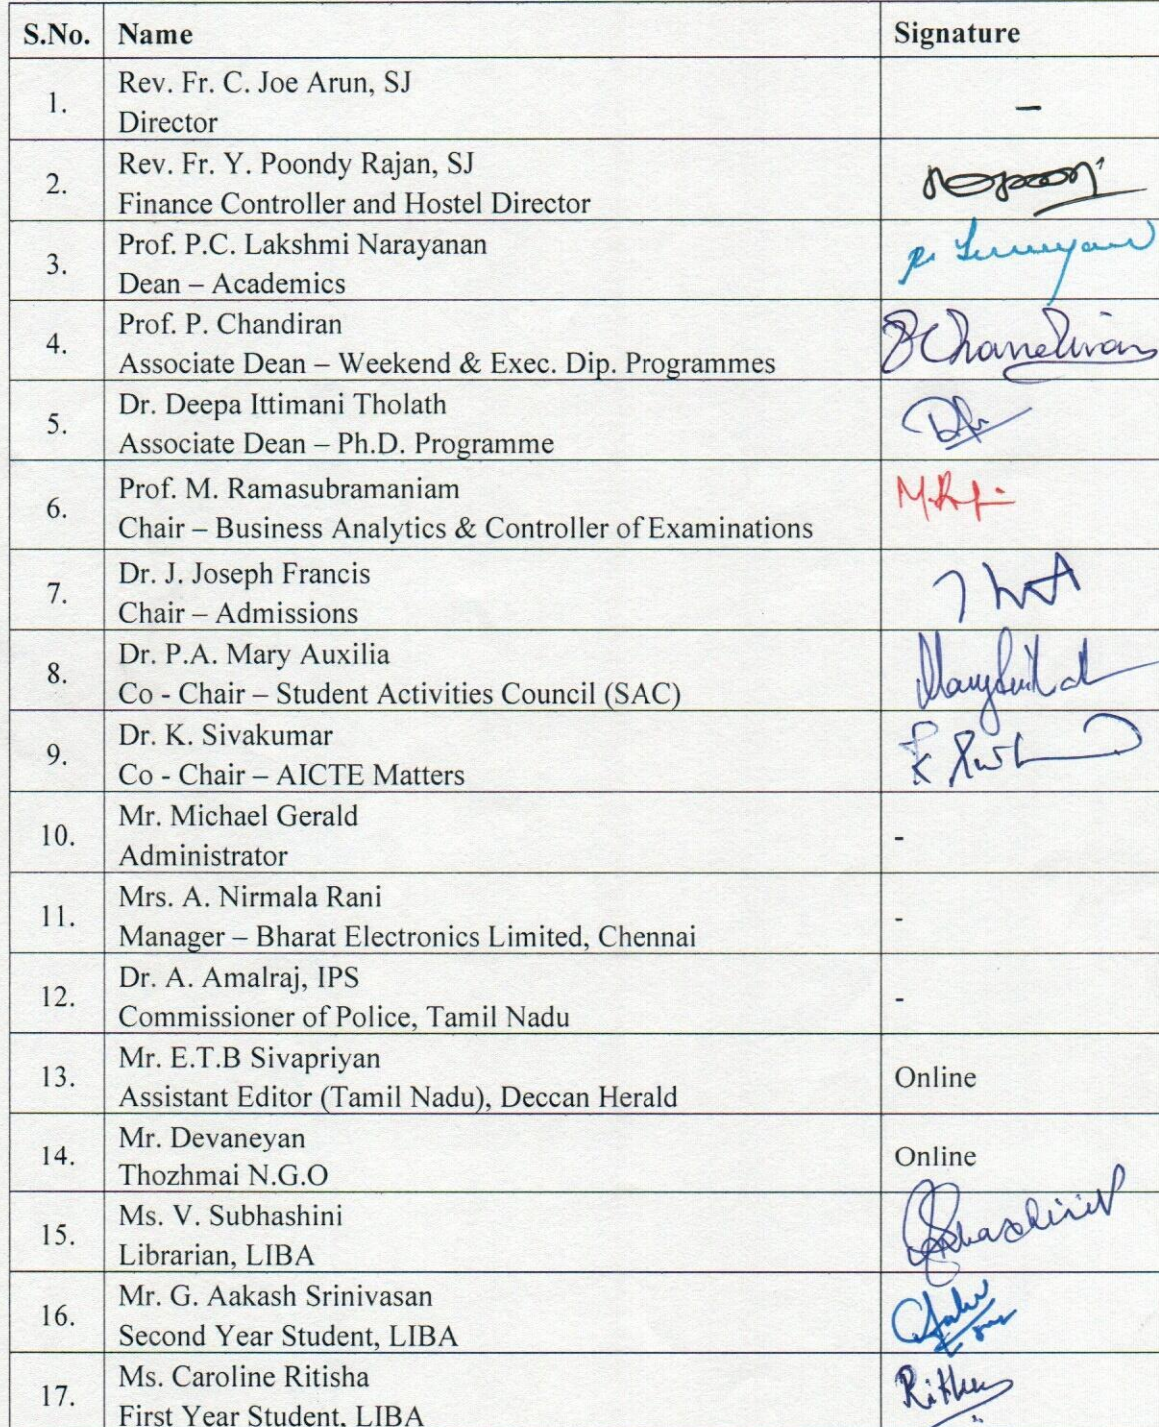 S.No. Name Signature
1. Rev. Fr. C. Joe Arun, SJ
Director –
2. Rev. Fr. Y. Poondy Rajan, SJ
Finance Controller and Hostel Director
3. Prof. P.C. Lakshmi Narayanan
Dean – Academics
4. Prof. P. Chandiran
Associate Dean – Weekend & Exec. Dip. Programmes
PChandiran
5. Dr. Deepa Ittimani Tholath
Associate Dean – Ph.D. Programme
6. Prof. M. Ramasubramaniam
Chair – Business Analytics & Controller of Examinations
7. Dr. J. Joseph Francis
Chair – Admissions
8. Dr. P.A. Mary Auxilia
Co - Chair – Student Activities Council (SAC)
9. Dr. K. Sivakumar
Co - Chair – AICTE Matters
10. Mr. Michael Gerald
Administrator -
11. Mrs. A. Nirmala Rani
Manager – Bharat Electronics Limited, Chennai -
12. Dr. A. Amalraj, IPS
Commissioner of Police, Tamil Nadu -
13. Mr. E.T.B Sivapriyan
Assistant Editor (Tamil Nadu), Deccan Herald Online
14. Mr. Devaneyan
Thozhmai N.G.O Online
15. Ms. V. Subhashini
Librarian, LIBA
16. Mr. G. Aakash Srinivasan
Second Year Student, LIBA
17. Ms. Caroline Ritisha
First Year Student, LIBA